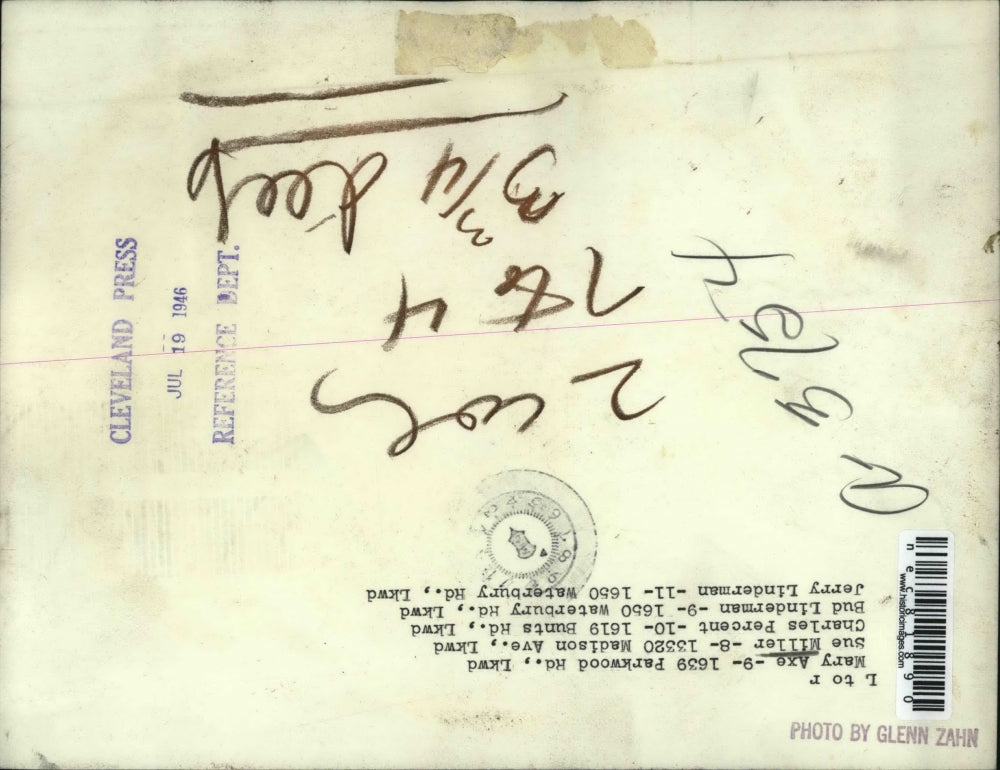 L to r
Mary Axe -9- 1639 Parkwood Rd., Lkwd
Sue Miller -8- 13320 Madison Ave., Lkwd
Charles Percent -10- 1619 Bunts Rd., Lkwd
Bud Linderman -9- 1650 Waterbury Rd., Lkwd
Jerry Linderman -11- 1650 Waterbury Rd., Lkwd
2 col
4
3 3/4 deep
CLEVELAND PRESS
JUL 19 1946
REFERENCE DEPT.
PHOTO BY GLENN ZAHN
www.historicimages.com
nec81890